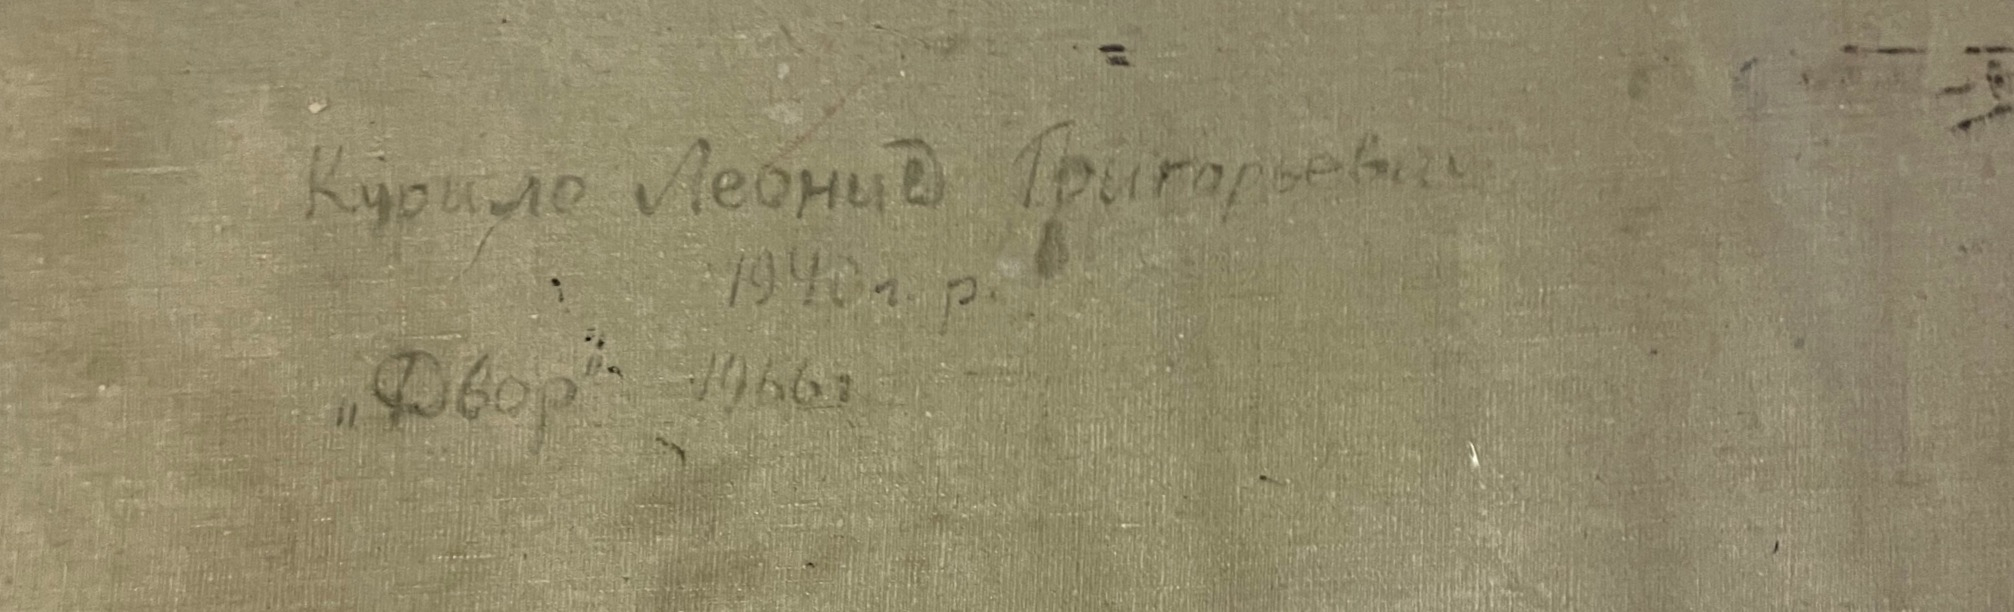 Курило Леонид Григорьевич
1940 г. р.
„Двор" 1966г